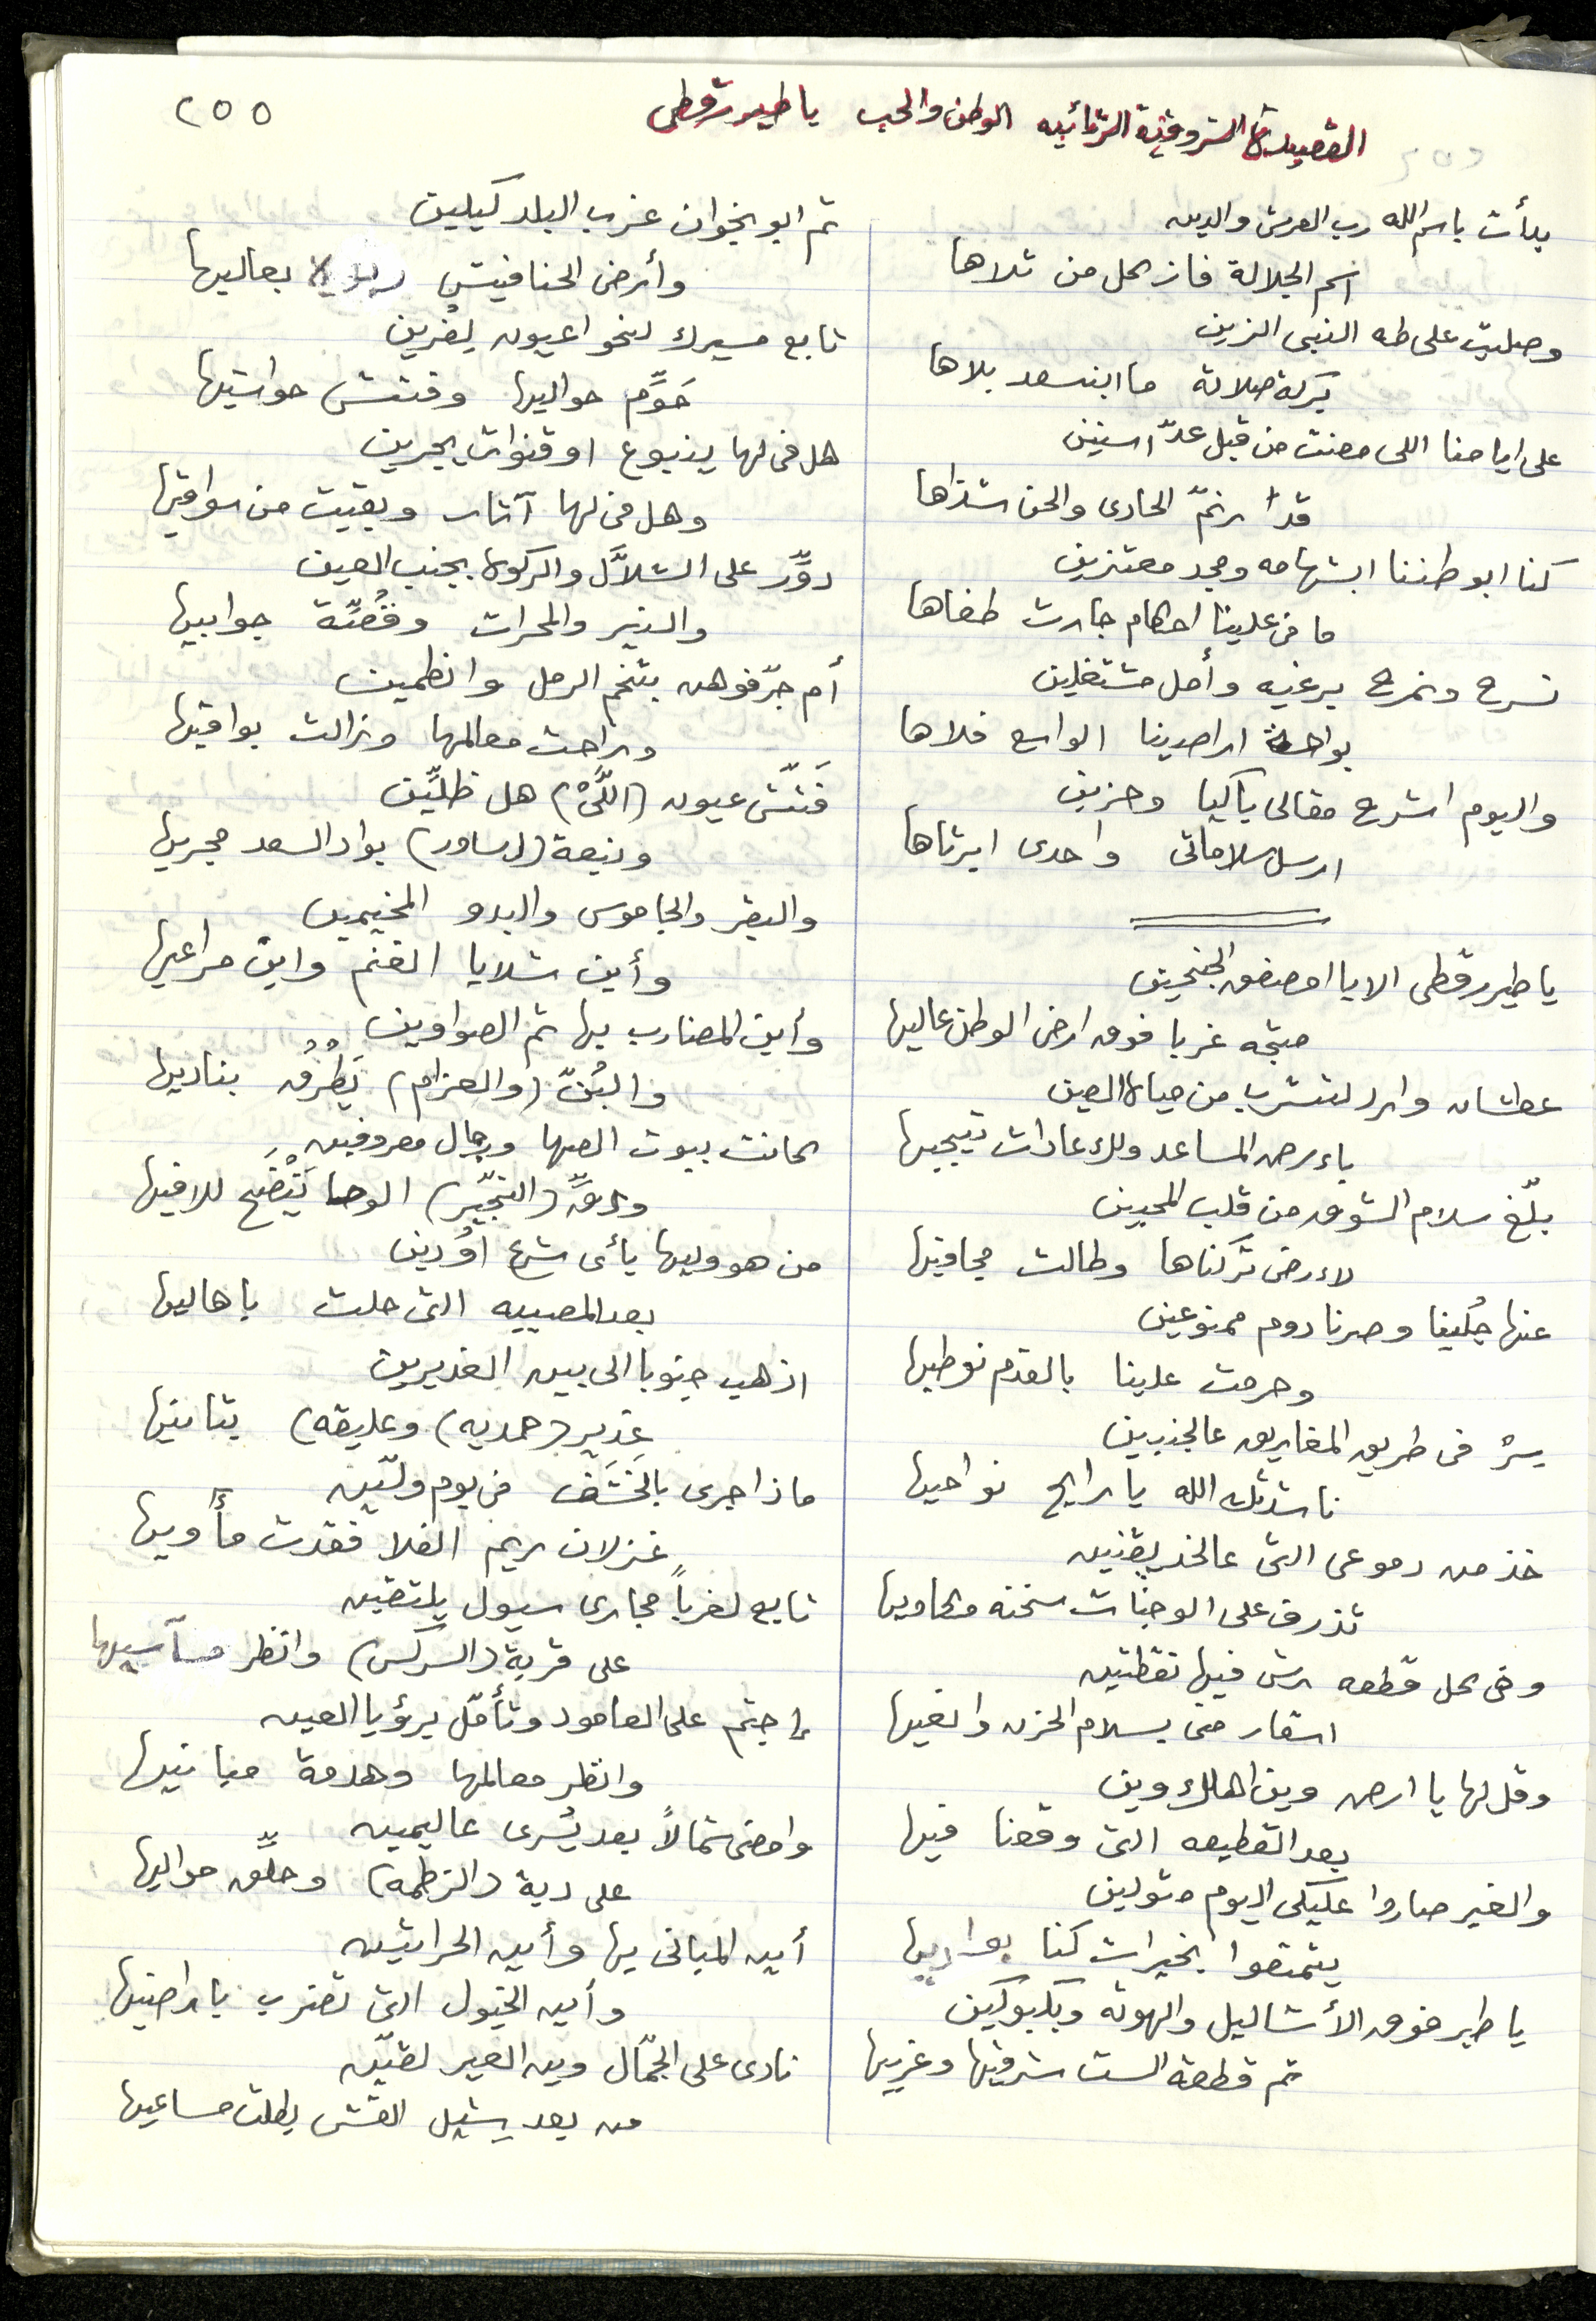 ٢٥٥
القصيدة الشروقية الثنائيه الوطن والحب يا طير رقطي
بدأت باسم الله رب العرش والدين
اسم الجلالة فاز كل من تلاها
وصليت على طه النبي الزين
بركة صلاته ما ابنسعد بلاها
على ايامنا اللي مضت من قبل عدّ اسنين
قد ارنمّ الحادي والحن شذاها
كنا ابوطننا ابشهامه ومجد معتزين
ما في علينا احكام جارت طغاها
نسرح ونمرح برغبه وأمل مشتغلين
بواحة اراضينا الواسع فلاها
واليوم اشرح مقالي باكيا وحزين
ارسل سلاماتي واحدى ابرثاها
يا طير رقطي الا يا امصفق الجنحين
متجه غربا فوق ارض الوطن عاليها
عطشان وارد لتشرب من مياة العين
بارض المساعد ولك عادات تيجيها
بلّغ سلام الشوق من قلب المحبين
لارض تركناها وطالت مجافيها
عنها جُلينا وصرنا دوم ممنوعين
وحرمت علينا بالقدم نوطيها
سر في طريق المغاريق عالجنبين
ناشدتك الله يا رايح نواحيها
خذ من دموعي التي عالخد يقنين
تذرف على الوجنات سخنه وكاويها
وفي كل قطعه رش فيها نقطتين
اسقار مني بسلام الحزن وانعيها
وقل لها يا ارض وين اهلك وين
بعد القطيعه التي وقعنا فيها
والغير صاروا عليكي اليوم متولين
يتمتعوا بخيرات كنا بواديها
يا طير فوق الأشاليل والهوته وبكبوكين
ثم قطعة الست شرقيها وغربيها
ثم ابو بخوان غرب البلد كيلين
وأرض الحنافيش بعاليها
تابع مسيرك لنحو اعيون لغرين
حَوِّم حواليها وفتش حواشيها
هل في لها ينبوع او قنوات يجرين
وهل في لها آثار وبقيت من سواقيها
دوِّر على الشلاّل والركوة بجنب العين
والنير والمحراث وقُصِّة جوابيها
أم جرّفوهن بتخم الرمل وانطمين
وراحت معالمها وزالت بواقيها
فَتِّش عيون (اللَّىْ) هل ظلِّين
ونبعة (لساور) بواد السعد مجريها
والبقر والجاموس والبدو المخيمين
وأين شلايا الغنم واين مراعيها
وأين المضارب بها ثم الصواوين
والبُنّ (والعزام) يَطرُق بناديها
كانت بيوت الصها ورجال معروفين
ودقِّة (النجِّير) الوحا يَتْضَح للافيها
من هو وليها بأي شرع اوُ دين
بعد المصيبه التي حلت باهاليها
اذهب جنوبا الى بين الغديرين
غدير (حمديه) وعليقه) بتانيها
ماذا جرى بالخَشَف في يوم ولّين
غزلان ريم الفلا فقدت مأويها
تابع لغرباً مجاري سيول يلتقين
على قرية (السركس) وانظر مآسيها
اجثم على العامود وتأمّل برؤيا العين
وانظر معالمها وهدمة مبانيها
وامضي شمالاً بعد يُسرى عاليمين
على دية (الزظمه) وحلِّق حواليها
أين المباني بها وأين الحراثين
وأين الخيول التي تضرب باراضيها
نادى على الجمّال وين العير لقين
من بعد يشيل القش بطلت مساعيها